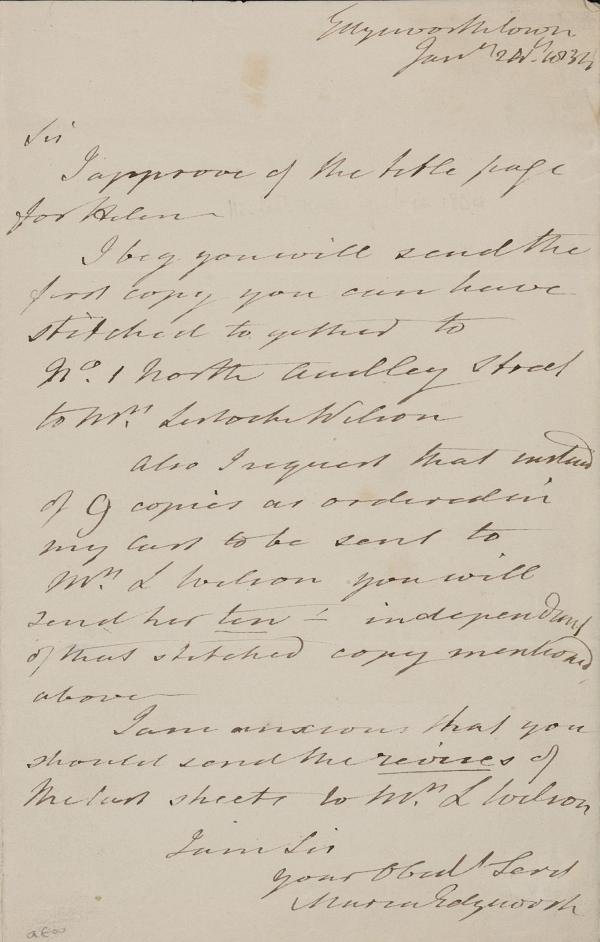 Edgeworthstown
Jany 24th 1834
Sir
I approve of the title page
for Helen
I beg you will send the
first copy you can have
stitched together to
No. 1 North Audley Street
to Mrs. Lestock Wilson
Also I request that instead
of 9 copies as ordered in
my last to be sent to
Mrs. L Wilson you will
send her ten – independant
of that stitched copy mentioned
above
I am anxious that you
should send the revises of
the last sheets to Mrs L Wilson
I am Sir
your Obedt Servt
Maria Edgeworth